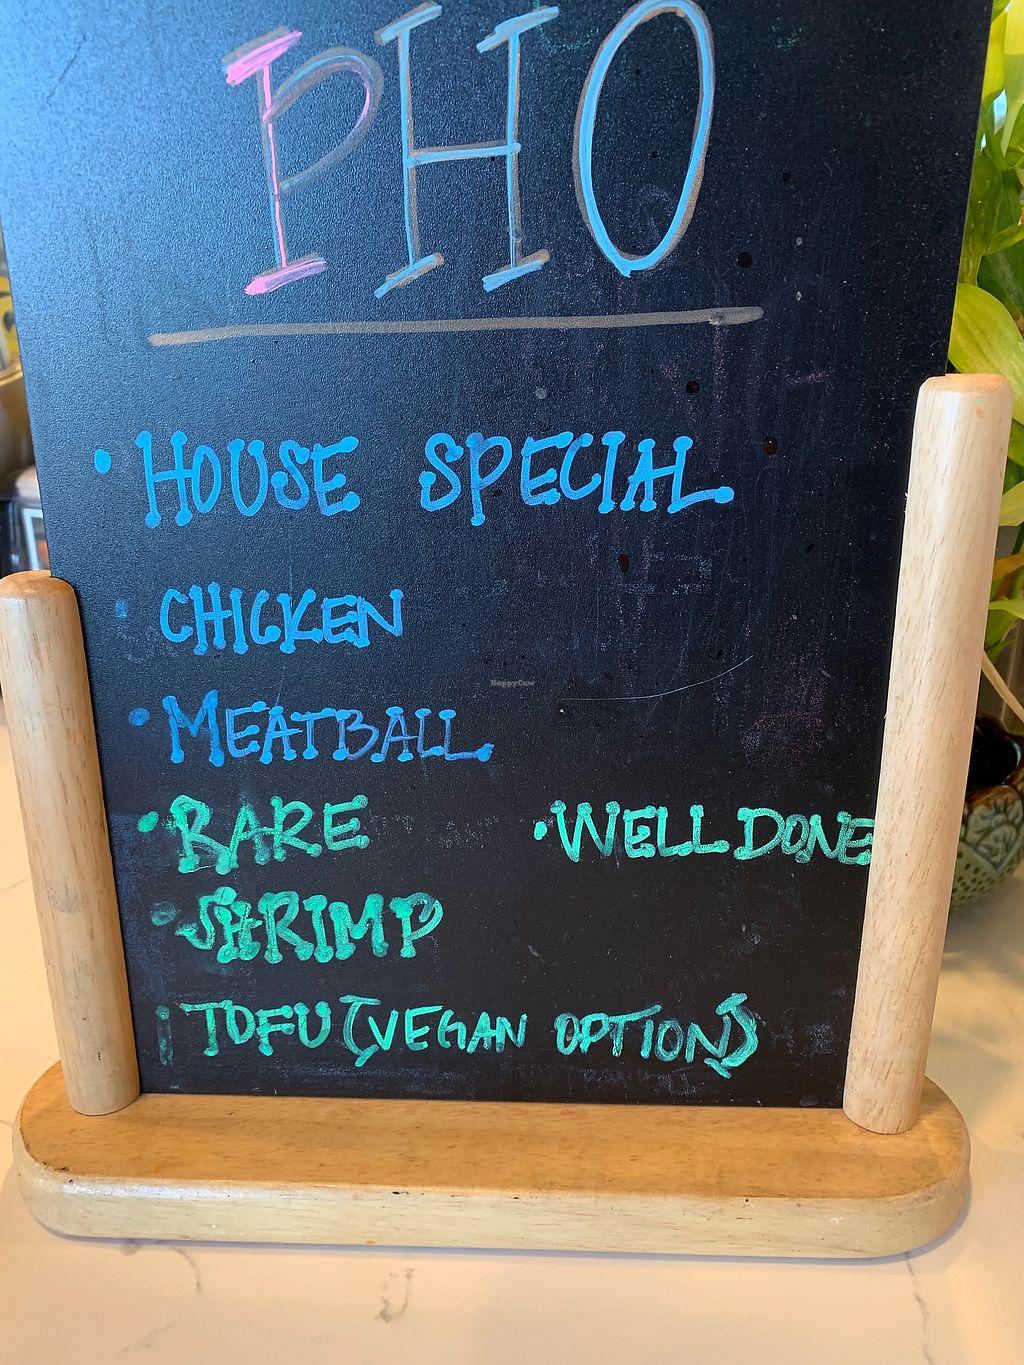 PHO
• HOUSE SPECIAL
• CHICKEN
• MEATBALL
• RARE • WELL DONE
• SHRIMP
• TOFU (VEGAN OPTION)
HappyCow